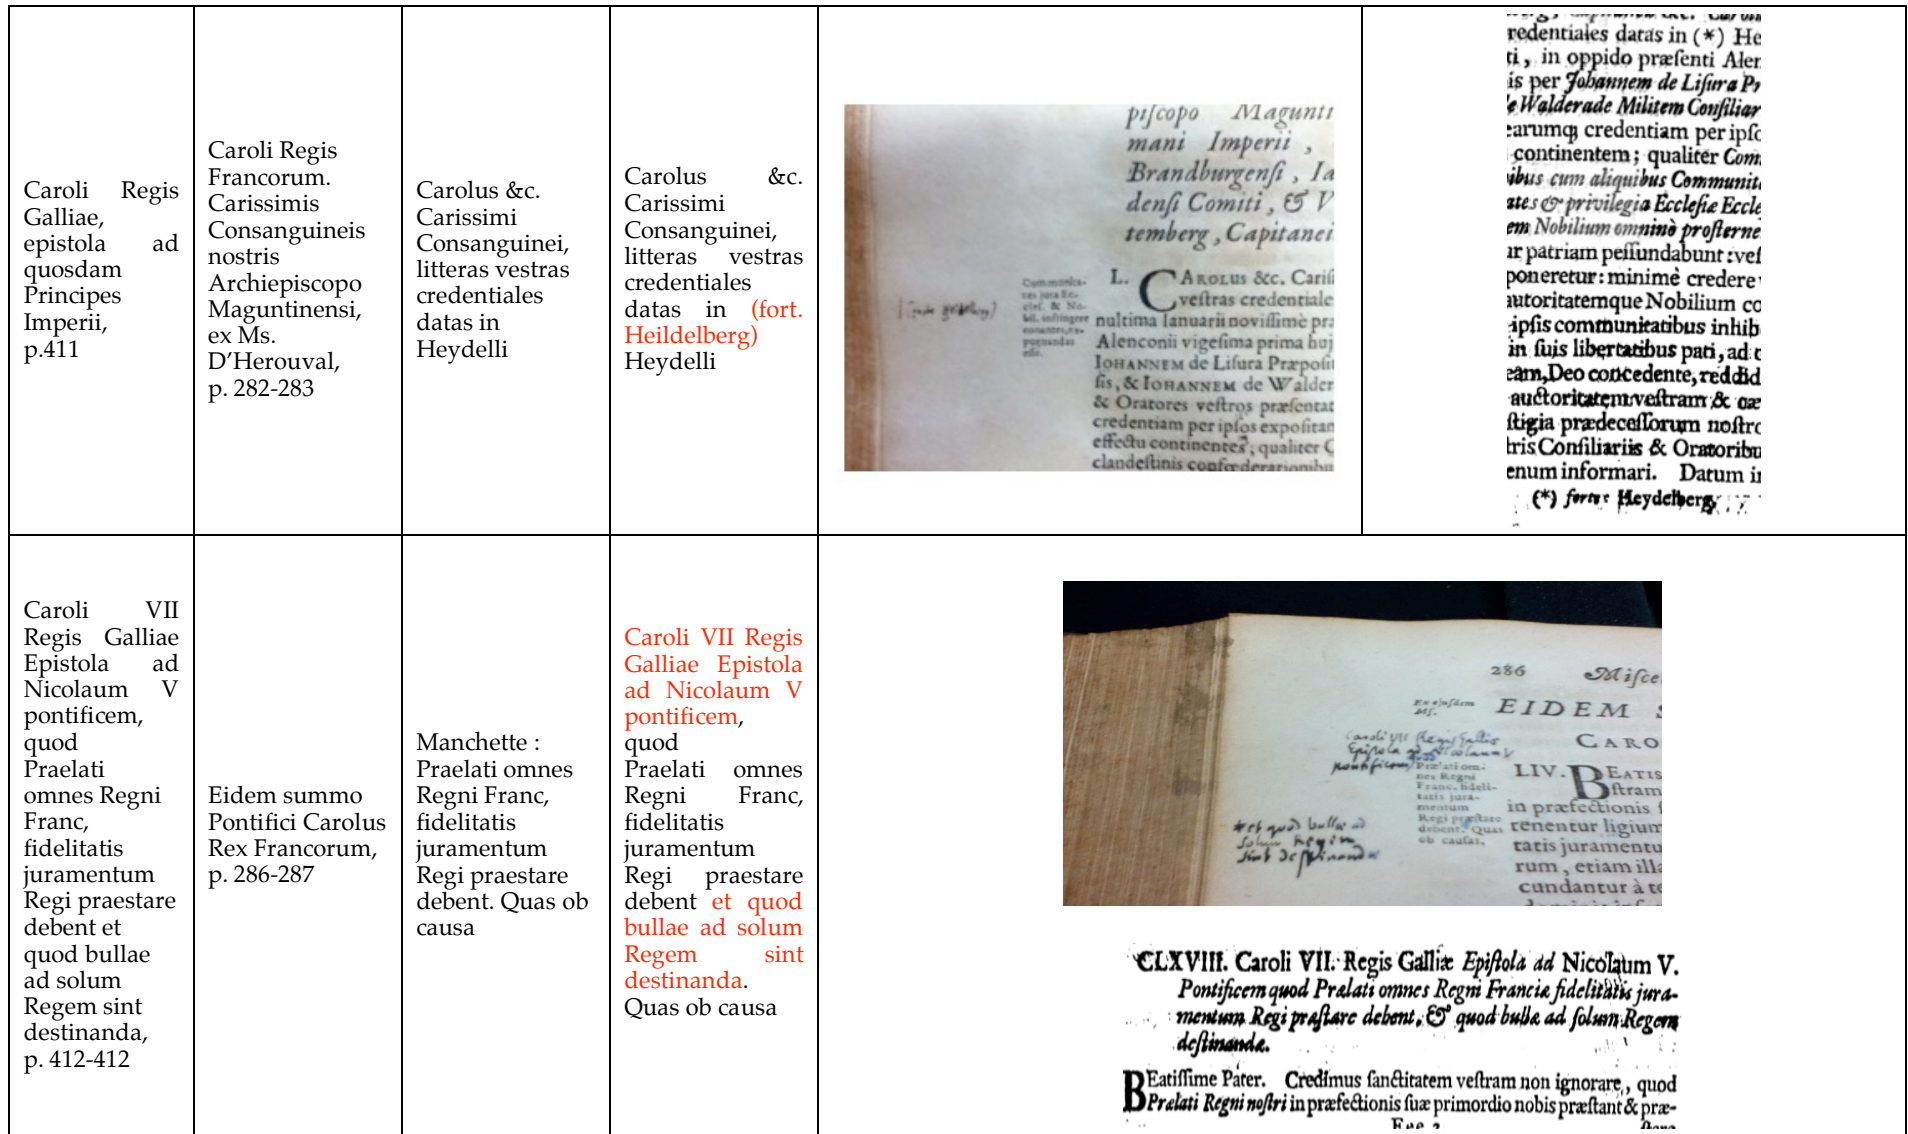 Caroli Regis
Galliae,
epistola ad
quosdam
Principes
Imperii,
p.411
Caroli Regis
Francorum.
Carissimis
Consanguineis
nostris
Archiepiscopo
Maguntinensi,
ex Ms.
D’Herouval,
p. 282-283
Carolus &c.
Carissimi
Consanguinei,
litteras vestras
credentiales
datas in
Heydelli
Carolus &c.
Carissimi
Consanguinei,
litteras vestras
credentiales
datas in (fort.
Heildelberg)
Heydelli
piſcopo Magunti
mani Imperii ,
Brandburgenſi , Ia
denſi Comiti , & V
temberg , Capitanei
Communica-
tes jura Ec-
cleſ. & No-
bil. infringere
eſſe.
L. CAROLUS &c. Cariſſ
veſtras credentiale
nultima Ianuarii noviſſimè pra
Alenconii vigeſima prima huj
IOHANNEM de Liſura Præpoſit
ſis, & IOHANNEM de Walder
& Oratores veſtros præſentat
credentiam per ipſos expoſitam
effectu continentes ; qualiter C
clandeſtinis confœderationibu
redentiales datas in (*) He
ti , in oppido præſenti Alen
is per Johannem de Liſura Pr
e Walderade Militem Conſiliar
earumq; credentiam per ipſo
continentem ; qualiter Com
ibus cum aliquibus Communit
ates & privilegia Eccleſiæ Eccle
em Nobilium omninò proſterne
ur patriam peſſundabunt : veſ
poneretur : minimè credere
autoritatemque Nobilium co
ipſis communitatibus inhib
in ſuis libertatibus pati , ad
eam, Deo concedente, reddid
auctoritatem veſtram &
ſtigia prædeceſſorum noſtro
tris Conſiliariis & Oratoribu
enum informari. Datum in
(*) fortè Heydelberg.
Caroli VII
Regis Galliae
Epistola ad
Nicolaum V
pontificem,
quod
Praelati
omnes Regni
Franc,
fidelitatis
juramentum
Regi praestare
debent et
quod bullae
ad solum
Regem sint
destinanda,
p. 412-412
Eidem summo
Pontifici Carolus
Rex Francorum,
p. 286-287
Manchette :
Praelati omnes
Regni Franc,
fidelitatis
juramentum
Regi praestare
debent. Quas ob
causa
Caroli VII Regis
Galliae Epistola
ad Nicolaum V
pontificem,
quod
Praelati omnes
Regni Franc,
fidelitatis
juramentum
Regi praestare
debent et quod
bullae ad solum
Regem sint
destinanda.
Quas ob causa
286 Miſce
Ex ejuſdem
Mſ.
EIDEM S
CARO
Caroli VII Regis Galliæ
Epistola ad Nicolaum V
pontificem quod
Prælati om-
nes Regni
Franc. fideli-
tatis jura-
mentum
Regi præſtare
debent. Quas
ob cauſas.
* et quod bullæ ad
solum Regem
sint destinandæ
LIV. BEATIS
ſtram
in præfectionis ſ
tenentur ligium
tatis juramentu
rum , etiam illa
cundantur à te
CLXVIII. Caroli VII. Regis Galliæ Epiſtola ad Nicolaum V.
Pontificem quod Prælati omnes Regni Franciæ fidelitatis jura-
mentum Regi præſtare debent, & quod bullæ ad ſolum Regem
deſtinandæ.
BEatiſſime Pater. Credimus ſanctitatem veſtram non ignorare, quod
Prælati Regni noſtri in præfectionis ſuæ primordio nobis præſtant & præ-
Eee 2